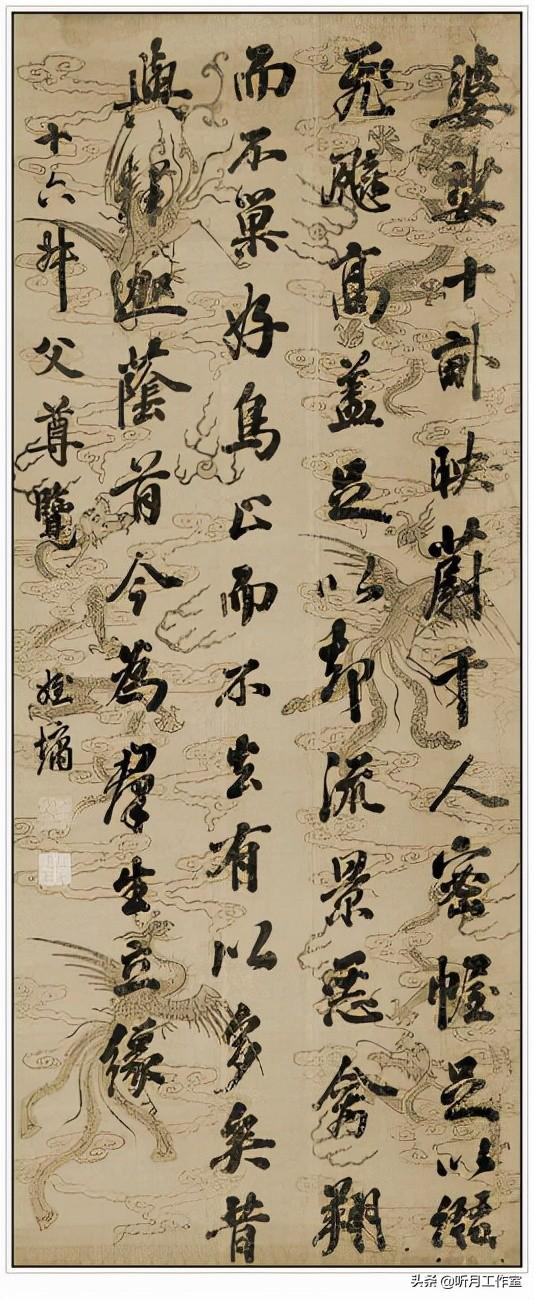 婆娑十畝映蔚千人密幄足以
飛飈高蓋足以却流景惡禽翔
而不巢好鳥止而不去有以多矣昔
與釋迦蔭首今為羣生立緣
十六叔父尊覽 姪墉
头条 @听月工作室